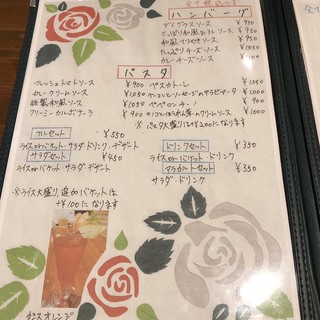 全て税込です
ハンバーグ
デミグラスソース ¥950
さっぱり和風おろしソース ¥950
和風てりやきソース ¥950
たっぷりチーズソース ¥1050
カレーチーズソース ¥1050
パスタ
フレッシュトマトソース ¥900
カレークリームソース ¥1050
特製和風ソース ¥1050
クリーミーカルボナーラ ¥900
ペスカトーレ ¥1050
ペペロンチーノ ¥900
※パスタ大盛りは+¥200になります
フルセット ¥550
ライスorバケット・サラダ・ドリンク・デザート
サラダセット ¥450
ライスorバケット・サラダ・デザート
ドリンクセット ¥350
ライスorバケット・ドリンク
¥350
サラダ・ドリンク
※ライス大盛り、追加バケットは
+¥100になります
オレンジ